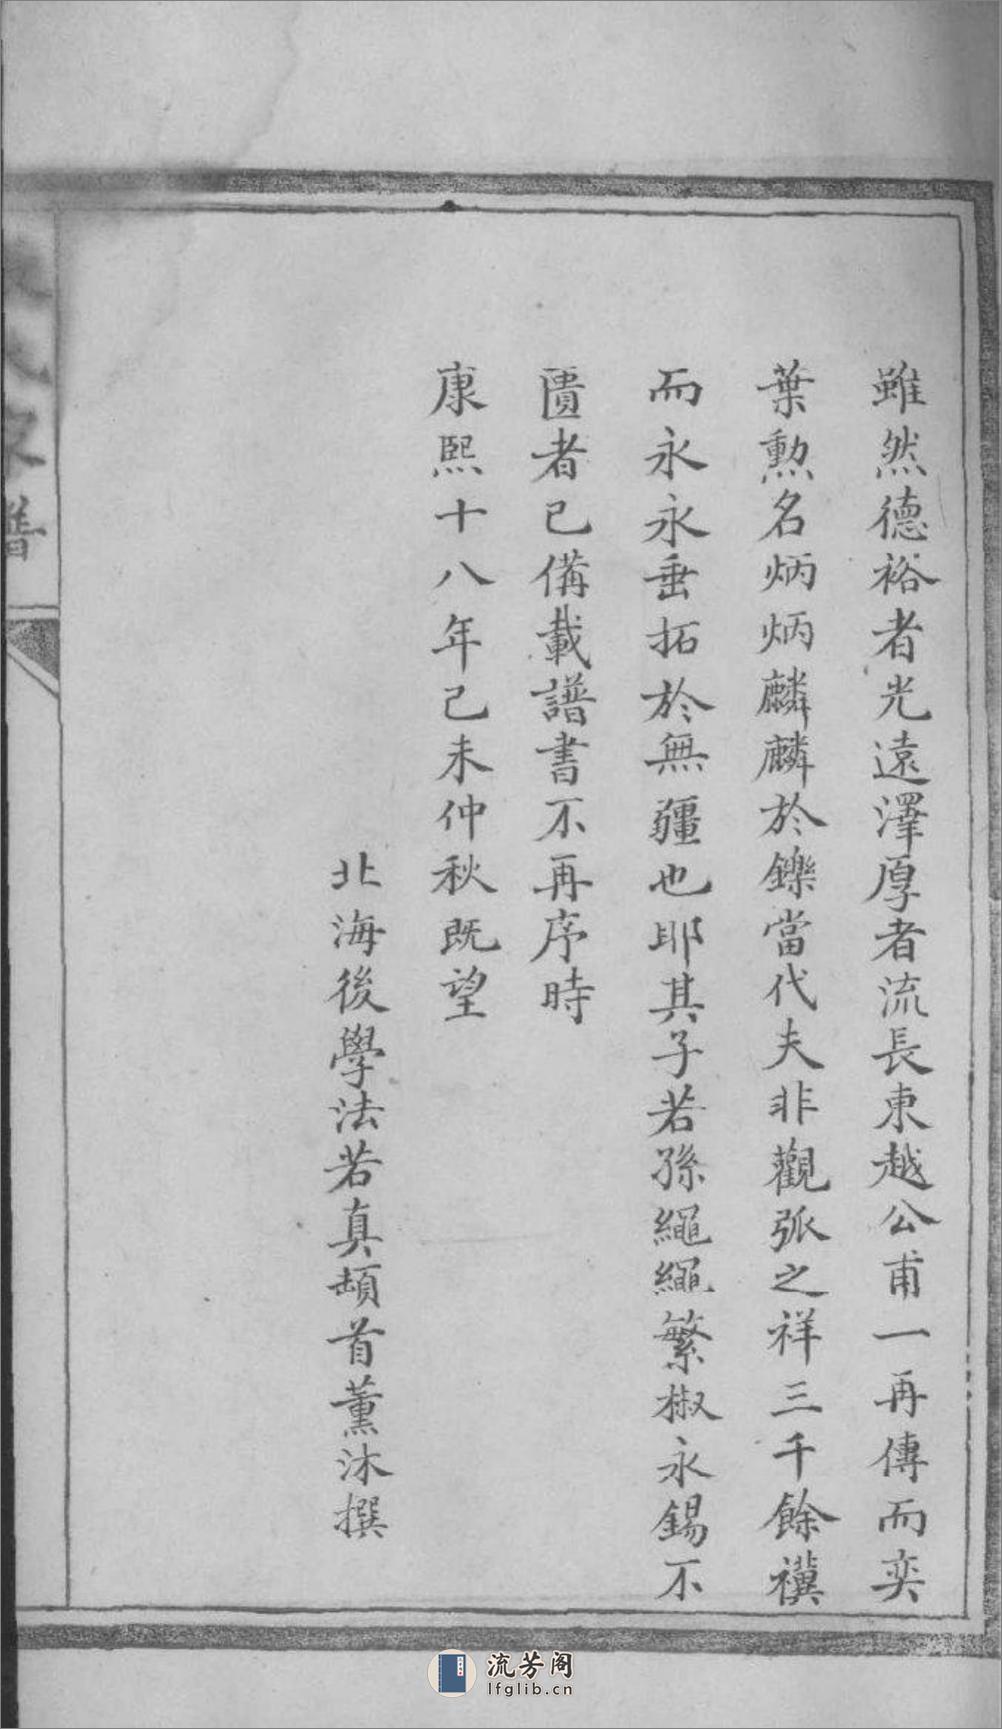 雖然德裕者光遠澤厚者流長東越公甫一再傳而奕
葉勲名炳炳麟麟於鑠當代夫非觀弧之祥三千餘禩
而永永垂拓於無疆也耶其子若孫繩繩繁椒永錫不
匱者已俻載譜書不再序時
康熙十八年己未仲秋既望
北海後學法若真頓首薰沐撰
家譜
流芳阁
lfglib.cn